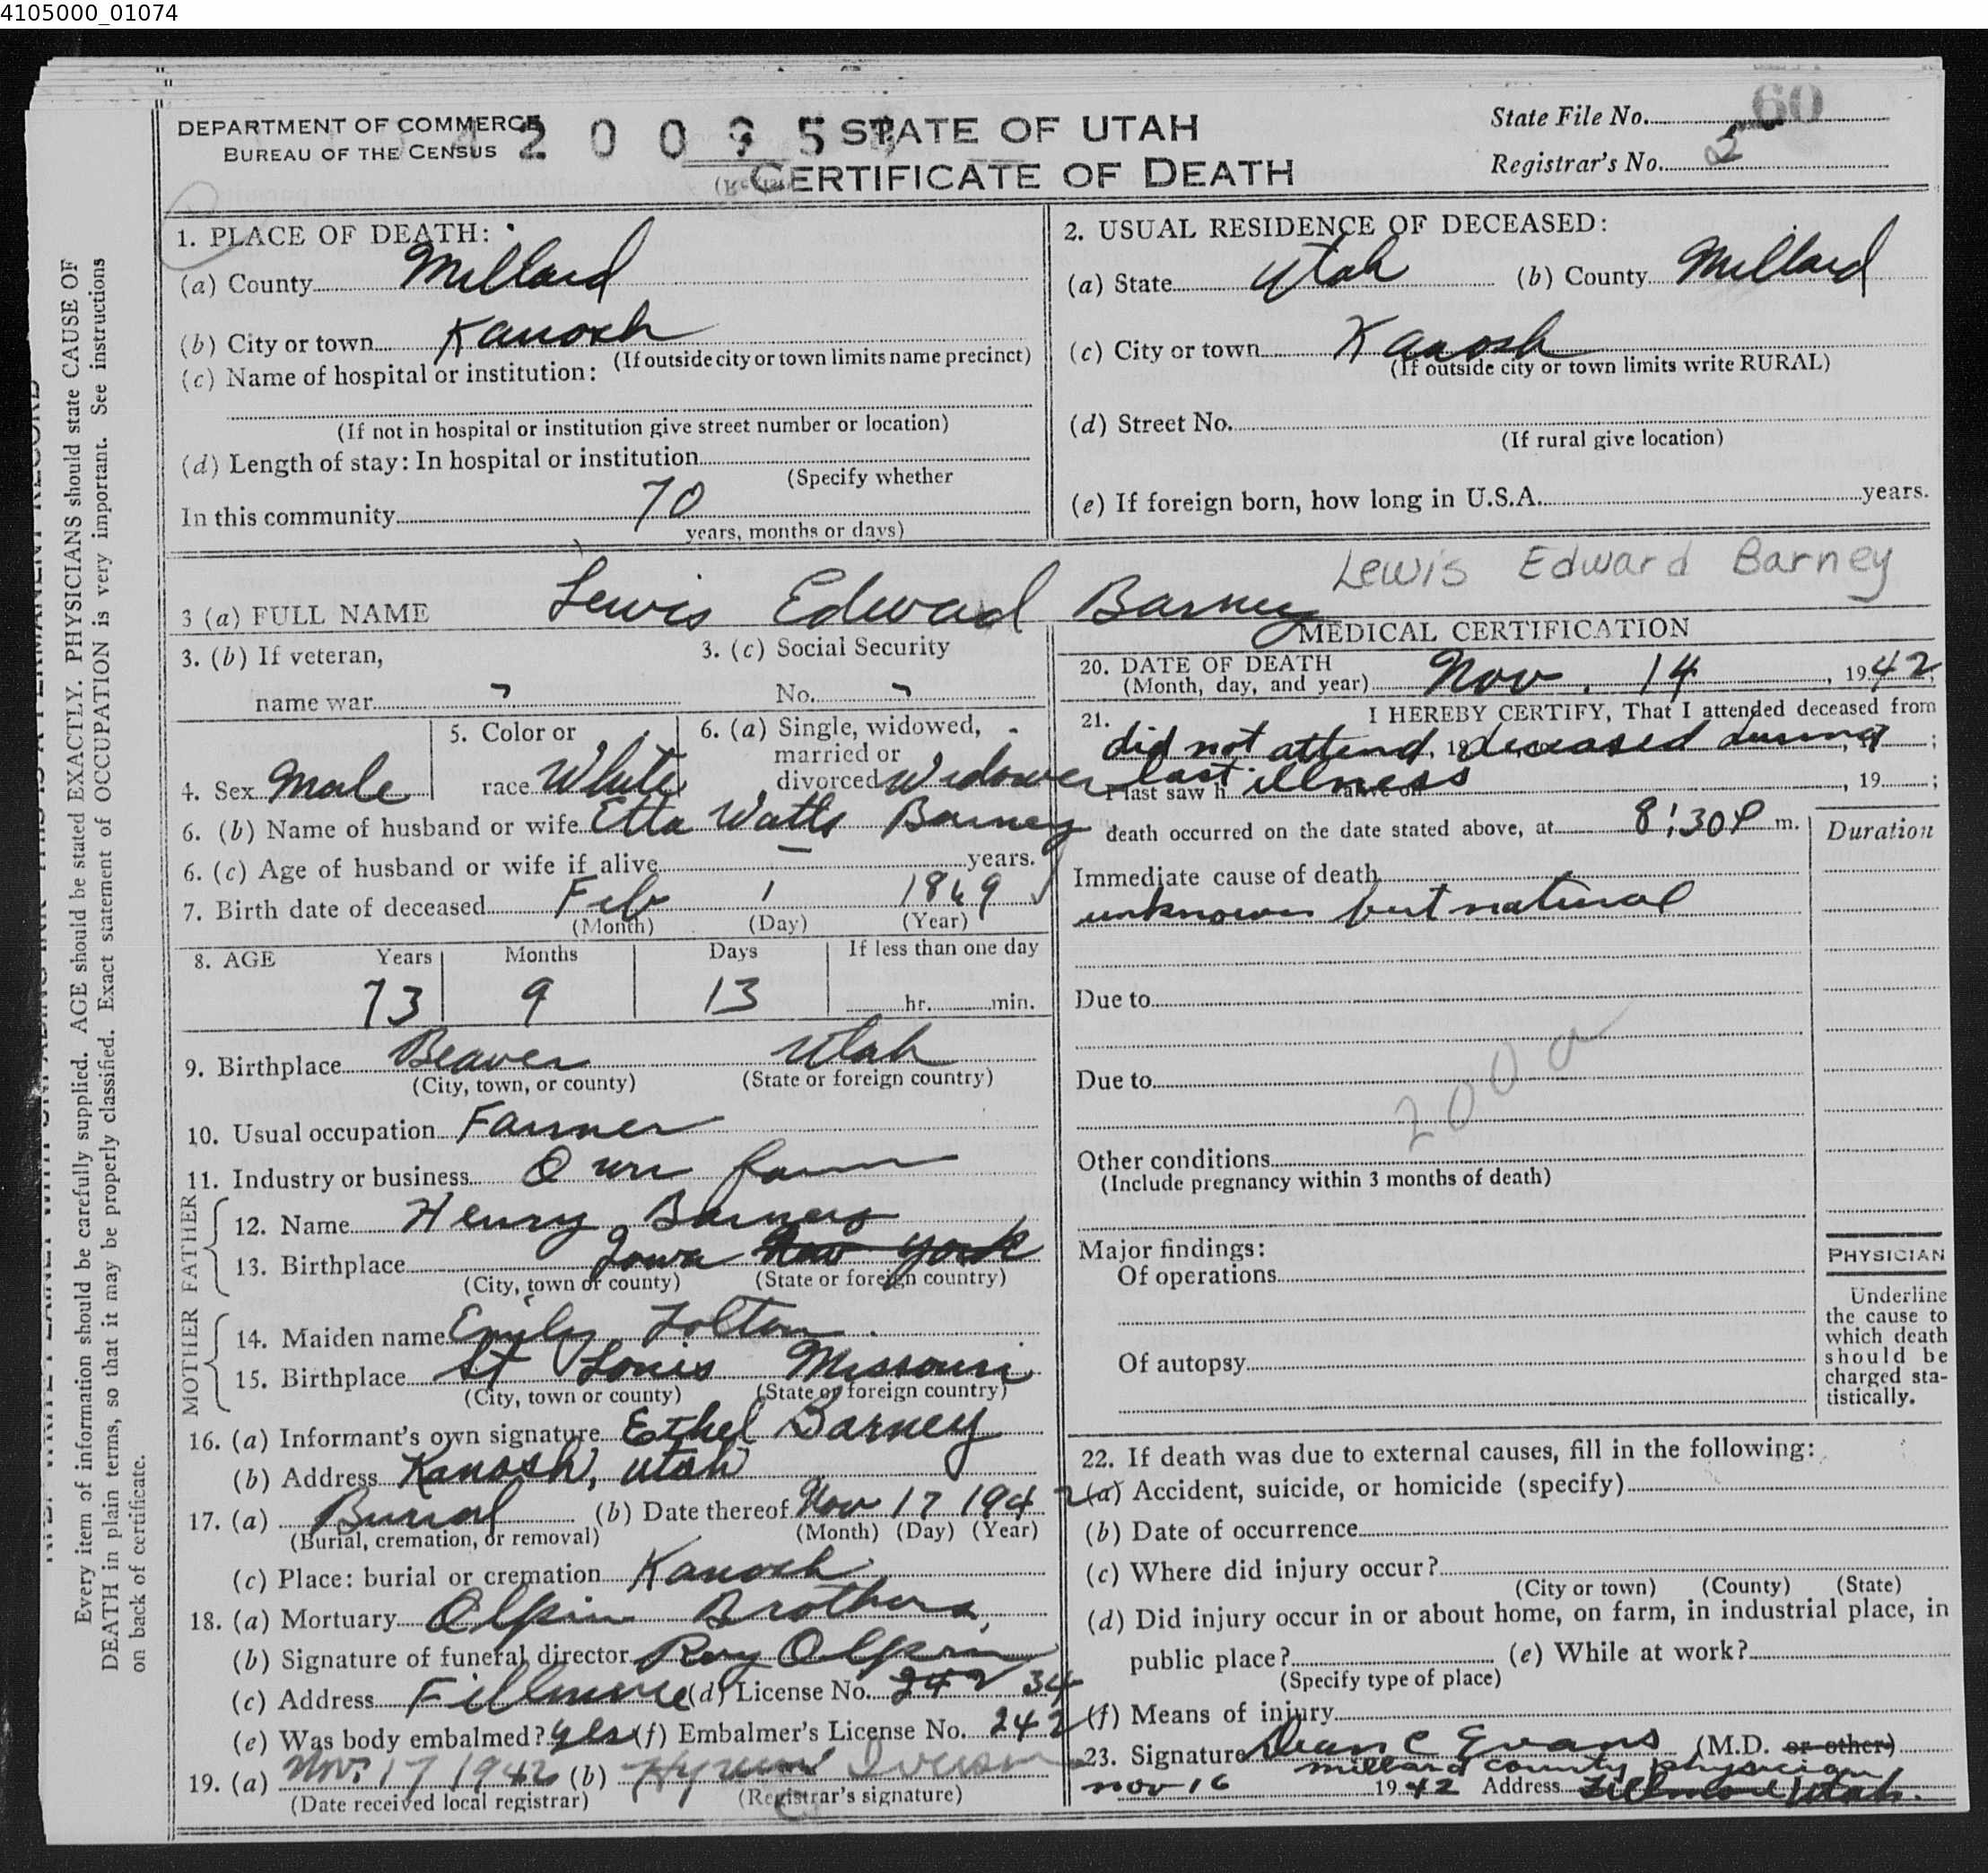 4105000_01074
DEPARTMENT OF COMMERCE
BUREAU OF THE CENSUS
STATE OF UTAH
CERTIFICATE OF DEATH
State File No. 60
Registrar's No.
1. PLACE OF DEATH:
(a) County Millard
(b) City or town Kanosh
(If outside city or town limits name precinct)
(c) Name of hospital or institution:
(If not in hospital or institution give street number or location)
(d) Length of stay: In hospital or institution
(Specify whether
In this community 70
years, months or days)
2. USUAL RESIDENCE OF DECEASED:
(a) State Utah (b) County Millard
(c) City or town Kanosh
(If outside city or town limits write RURAL)
(d) Street No.
(If rural give location)
(e) If foreign born, how long in U.S.A. years.
3 (a) FULL NAME Lewis Edward Barney
Lewis Edward Barney
3. (b) If veteran,
name war
3. (c) Social Security
No.
4. Sex Male
5. Color or
race White
6. (a) Single, widowed,
married or
divorced Widower
6. (b) Name of husband or wife Etta Watts Barney
6. (c) Age of husband or wife if alive — years.
7. Birth date of deceased Feb 1 1869
(Month) (Day) (Year)
8. AGE Years Months Days If less than one day
73 9 13 hr. min.
9. Birthplace Beaver Utah
(City, town, or county) (State or foreign country)
10. Usual occupation Farmer
11. Industry or business Own farm
FATHER
12. Name Henry Barney
13. Birthplace Iowa New York
(City, town or county) (State or foreign country)
MOTHER
14. Maiden name Emily Tolton
15. Birthplace St Louis Missouri
(City, town or county) (State or foreign country)
16. (a) Informant's own signature Ethel Barney
(b) Address Kanosh, Utah
17. (a) Burial (b) Date thereof Nov 17 1942
(Burial, cremation, or removal) (Month) (Day) (Year)
(c) Place: burial or cremation Kanosh
18. (a) Mortuary Olpin Brothers
(b) Signature of funeral director Roy Olpin
(c) Address Fillmore (d) License No. 242 34
(e) Was body embalmed? yes (f) Embalmer's License No. 242
19. (a) Nov. 17 1942 (b) Hyrum Iverson
(Date received local registrar) (Registrar's signature)
MEDICAL CERTIFICATION
20. DATE OF DEATH
(Month, day, and year) Nov. 14, 1942
21. I HEREBY CERTIFY, That I attended deceased from
did not attend, 19 deceased during ;
last illness
I last saw h alive on , 19 ;
death occurred on the date stated above, at 8:30 P m.
Duration
Immediate cause of death
unknown but natural
Due to
Due to
200 a
Other conditions
(Include pregnancy within 3 months of death)
Major findings:
Of operations
Of autopsy
PHYSICIAN
Underline
the cause to
which death
should be
charged sta-
tistically.
22. If death was due to external causes, fill in the following:
(a) Accident, suicide, or homicide (specify)
(b) Date of occurrence
(c) Where did injury occur?
(City or town) (County) (State)
(d) Did injury occur in or about home, on farm, in industrial place, in
public place? (e) While at work?
(Specify type of place)
(f) Means of injury
23. Signature Dean C Evans (M.D. or other)
millard county physician
nov 16 1942 Address Fillmore Utah.
Every item of information should be carefully supplied. AGE should be stated EXACTLY. PHYSICIANS should state CAUSE OF
DEATH in plain terms, so that it may be properly classified. Exact statement of OCCUPATION is very important. See instructions
on back of certificate.